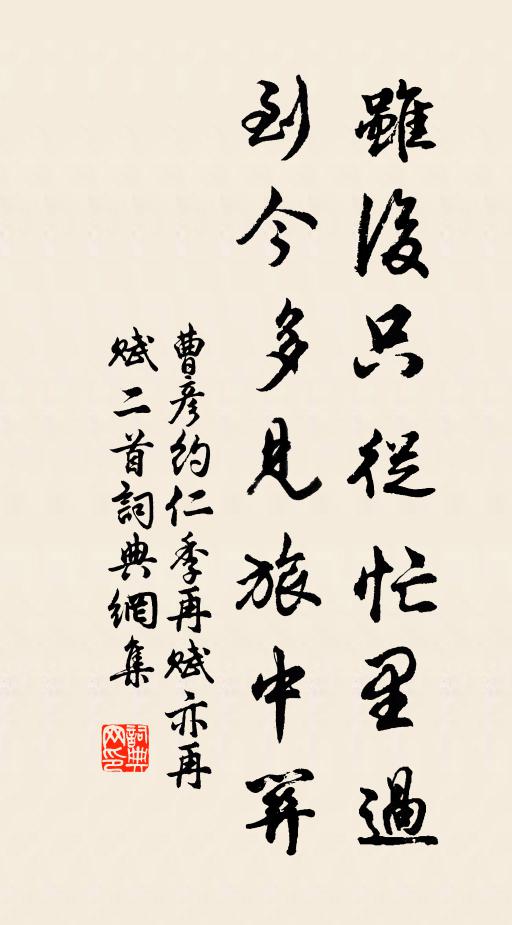 雖復只從忙里過
到今多見旅中開
曹彦約仁季再賦亦再
賦二首詞典網集
詞典
网印